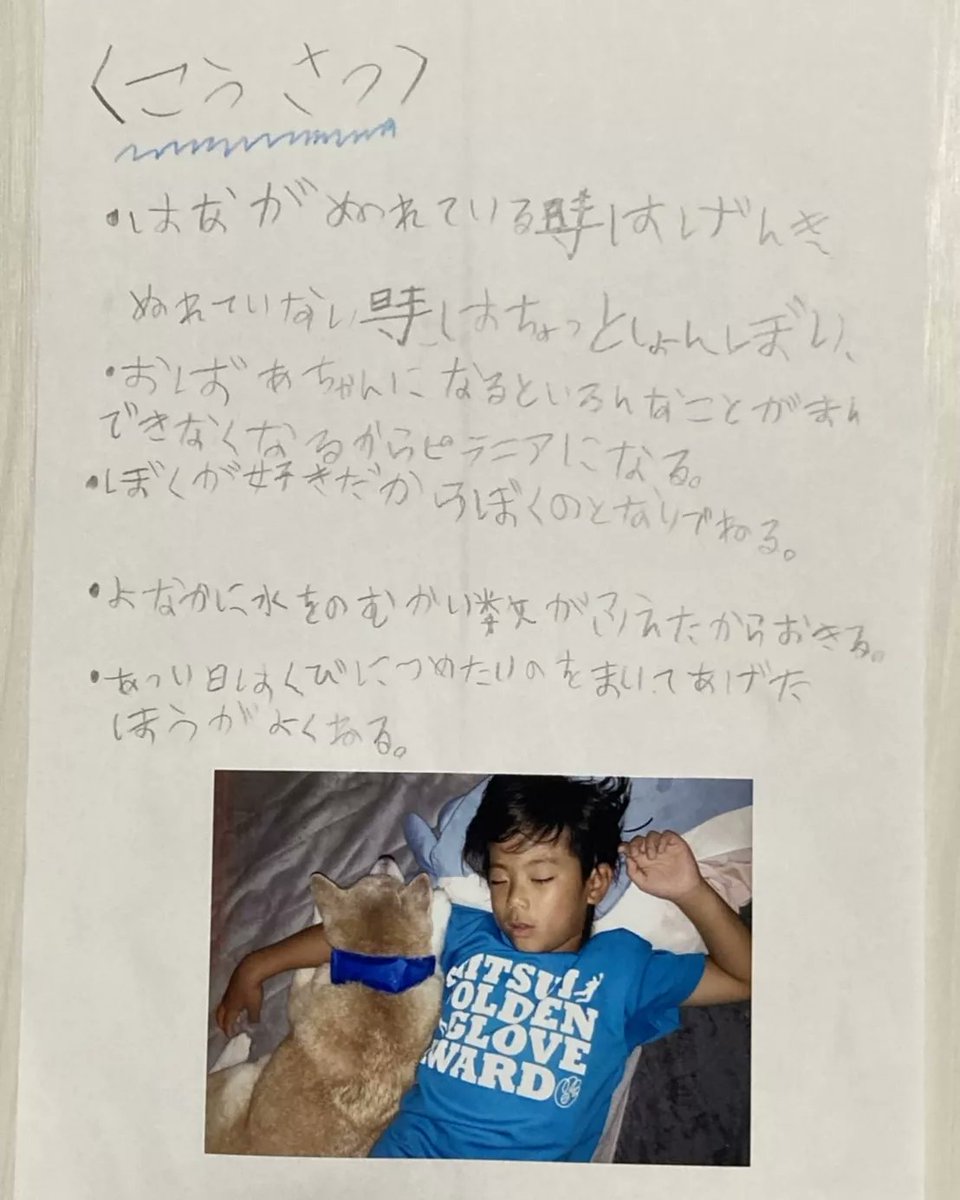 〈こうさつ〉
・はながぬれている時はげんき
ぬれていない時はちょっとしょんぼり、
・おばあちゃんになるといろんなことがまん
できなくなるからピラニアになる。
・ぼくが好きだからぼくのとなりでねる。
・よなかに水をのむかい数がふえたからおきる。
・あつい日はくびにつめたいのをまいてあげた
ほうがよくねる。
MITSUI
GOLDEN
GLOVE
AWARD